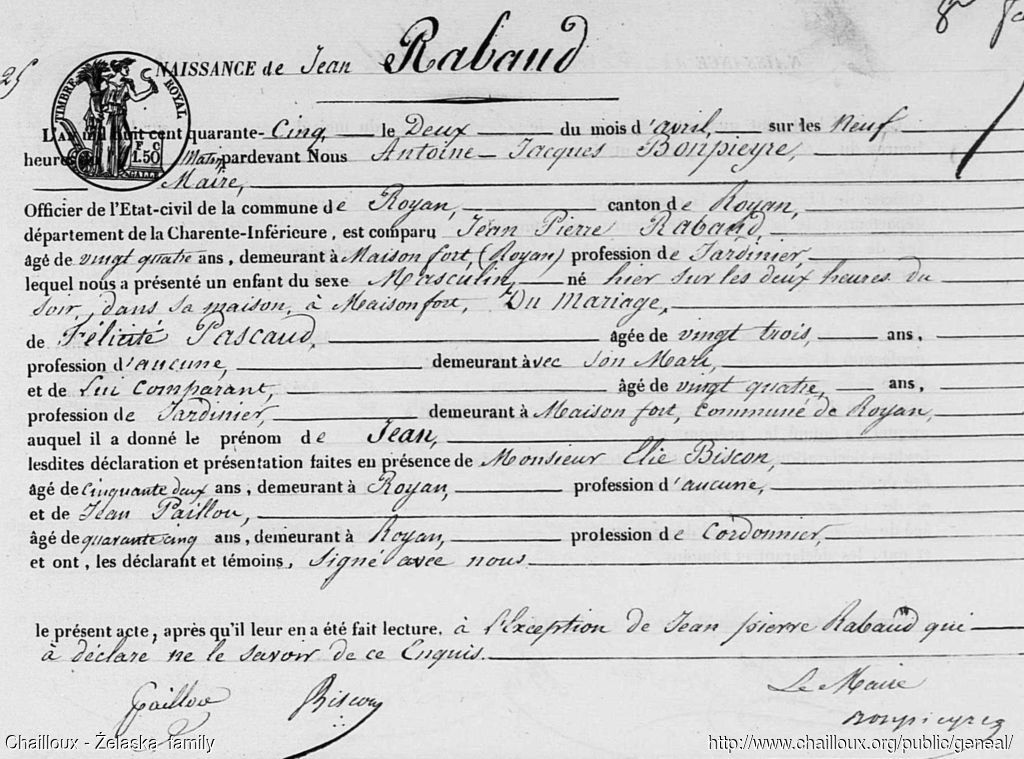 25
NAISSANCE de Jean Rabaud
TIMBRE ROYAL
F C
1.50
L'An mil huit cent quarante-Cinq, le Deux du mois d'avril, sur les Neuf
heures du Matin, pardevant Nous Antoine-Jacques Bonpieyre,
Maire,
Officier de l'Etat-civil de la commune de Royan, canton de Royan,
département de la Charente-Inférieure, est comparu Jean Pierre Rabaud
âgé de vingt quatre ans, demeurant à Maison fort, (Royan) profession de Jardinier,
lequel nous a présenté un enfant du sexe Masculin, né hier sur les deux heures du
soir, dans sa maison, à Maisonfort, Du Mariage,
de Félicité Pascaud, âgée de vingt trois, ans,
profession d'aucune, demeurant avec Son Mari,
et de Lui Comparant, âgé de vingt quatre, ans,
profession de Jardinier, demeurant à Maison fort, Commune de Royan,
auquel il a donné le prénom de Jean,
lesdites déclaration et présentation faites en présence de Monsieur Elie Biscon,
âgé de Cinquante deux ans, demeurant à Royan, profession d'aucune,
et de Jean Paillou,
âgé de quarante cinq ans, demeurant à Royan, profession de Cordonnier,
et ont, les déclarant et témoins, Signé avec nous
le présent acte, après qu'il leur en a été fait lecture. à l'Exception de Jean pierre Rabaud qui
à déclaré ne le Savoir de ce Enquis.
Paillou Biscon Le Maire
Bonpieyre
Chailloux - Żelaska family http://www.chailloux.org/public/geneal/